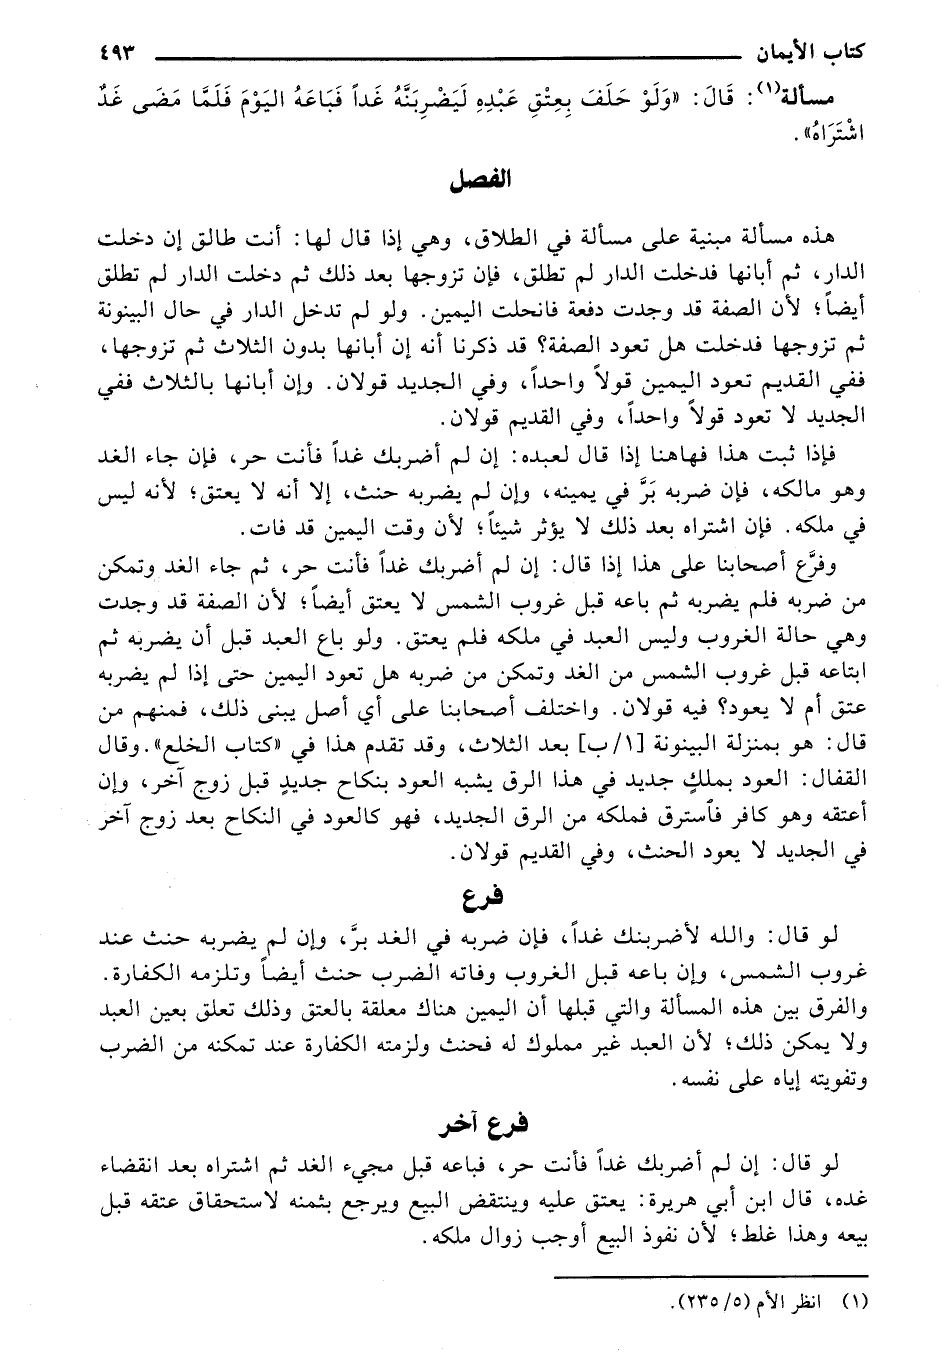 كتاب الأيمان ٤٩٣
مسألة(١): قَالَ: «وَلَوْ حَلَفَ بِعِتْقِ عَبْدِهِ لَيَضْرِبَنَّهُ غَداً فَبَاعَهُ اليَوْمَ فَلَمَّا مَضَى غَدٌ
اشْتَرَاهُ».
الفصل
هذه مسألة مبنية على مسألة في الطلاق، وهي إذا قال لها: أنت طالق إن دخلت
الدار، ثم أبانها فدخلت الدار لم تطلق، فإن تزوجها بعد ذلك ثم دخلت الدار لم تطلق
أيضاً؛ لأن الصفة قد وجدت دفعة فانحلت اليمين. ولو لم تدخل الدار في حال البينونة
ثم تزوجها فدخلت هل تعود الصفة؟ قد ذكرنا أنه إن أبانها بدون الثلاث ثم تزوجها،
ففي القديم تعود اليمين قولاً واحداً، وفي الجديد قولان. وإن أبانها بالثلاث ففي
الجديد لا تعود قولاً واحداً، وفي القديم قولان.
فإذا ثبت هذا فهاهنا إذا قال لعبده: إن لم أضربك غداً فأنت حر، فإن جاء الغد
وهو مالكه، فإن ضربه بَرَّ في يمينه، وإن لم يضربه حنث، إلا أنه لا يعتق؛ لأنه ليس
في ملكه. فإن اشتراه بعد ذلك لا يؤثر شيئاً؛ لأن وقت اليمين قد فات.
وفرَّع أصحابنا على هذا إذا قال: إن لم أضربك غداً فأنت حر، ثم جاء الغد وتمكن
من ضربه فلم يضربه ثم باعه قبل غروب الشمس لا يعتق أيضاً؛ لأن الصفة قد وجدت
وهي حالة الغروب وليس العبد في ملكه فلم يعتق. ولو باع العبد قبل أن يضربه ثم
ابتاعه قبل غروب الشمس من الغد وتمكن من ضربه هل تعود اليمين حتى إذا لم يضربه
عتق أم لا يعود؟ فيه قولان. واختلف أصحابنا على أي أصل يبنى ذلك، فمنهم من
قال: هو بمنزلة البينونة [١/ب] بعد الثلاث، وقد تقدم هذا في «كتاب الخلع». وقال
القفال: العود بملكٍ جديد في هذا الرق يشبه العود بنكاح جديدٍ قبل زوج آخر، وإن
أعتقه وهو كافر فأسترق فملكه من الرق الجديد، فهو كالعود في النكاح بعد زوج آخر
في الجديد لا يعود الحنث، وفي القديم قولان.
فرع
لو قال: والله لأضربنك غداً، فإن ضربه في الغد برَّ، وإن لم يضربه حنث عند
غروب الشمس، وإن باعه قبل الغروب وفاته الضرب حنث أيضاً وتلزمه الكفارة.
والفرق بين هذه المسألة والتي قبلها أن اليمين هناك معلقة بالعتق وذلك تعلق بعين العبد
ولا يمكن ذلك؛ لأن العبد غير مملوك له فحنث ولزمته الكفارة عند تمكنه من الضرب
وتفويته إياه على نفسه.
فرع آخر
لو قال: إن لم أضربك غداً فأنت حر، فباعه قبل مجيء الغد ثم اشتراه بعد انقضاء
غده، قال ابن أبي هريرة: يعتق عليه وينتقض البيع ويرجع بثمنه لاستحقاق عتقه قبل
بيعه وهذا غلط؛ لأن نفوذ البيع أوجب زوال ملكه.
(١) انظر الأم (٥/ ٢٣٥).